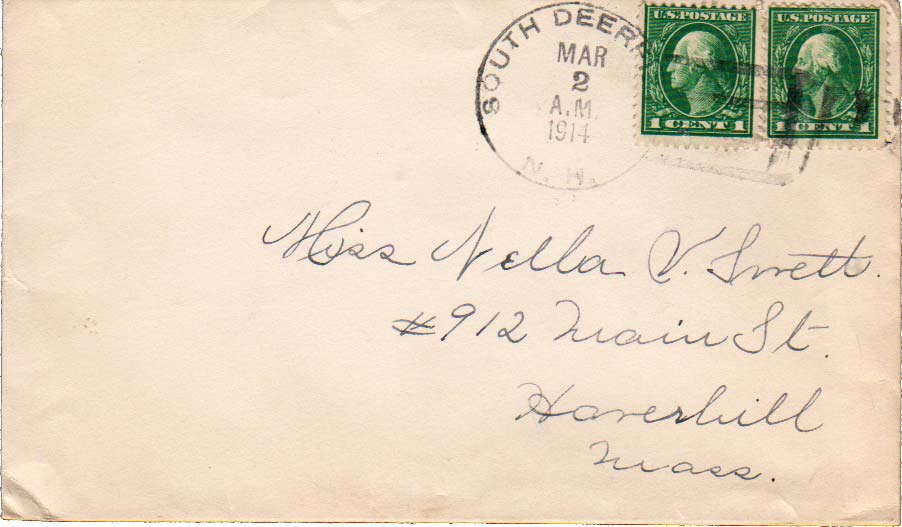 SOUTH DEER
MAR
2
A.M.
1914
N. H.
U.S. POSTAGE
1 CENT 1
U.S. POSTAGE
1 CENT 1
Miss Nella V. Swett.
#912 Main St.
Haverhill
Mass.